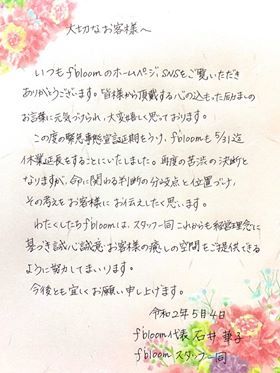 大切なお客様へ
いつもfbloomのホームページ、SNSをご覧いただき
ありがとうございます。皆様から頂戴する心の込もった励ましの
お言葉に元気づけられ、大変嬉しく思っております。
この度の緊急事態宣言延期をうけ、fbloomも5/31迄
休業延長をすることにいたしました。再度の苦渋の決断と
なりますが、命に関わる判断の分岐点と位置づけ、
その考えをお客様にお伝えしたく思います。
わたくしたちfbloomは、スタッフ一同これからも経営理念に
基づき誠心誠意お客様の癒しの空間をご提供できる
ように努力してまいります。
今後とも宜しくお願い申し上げます。
令和2年5月4日
fbloom代表 石井 華子
fbloom スタッフ一同